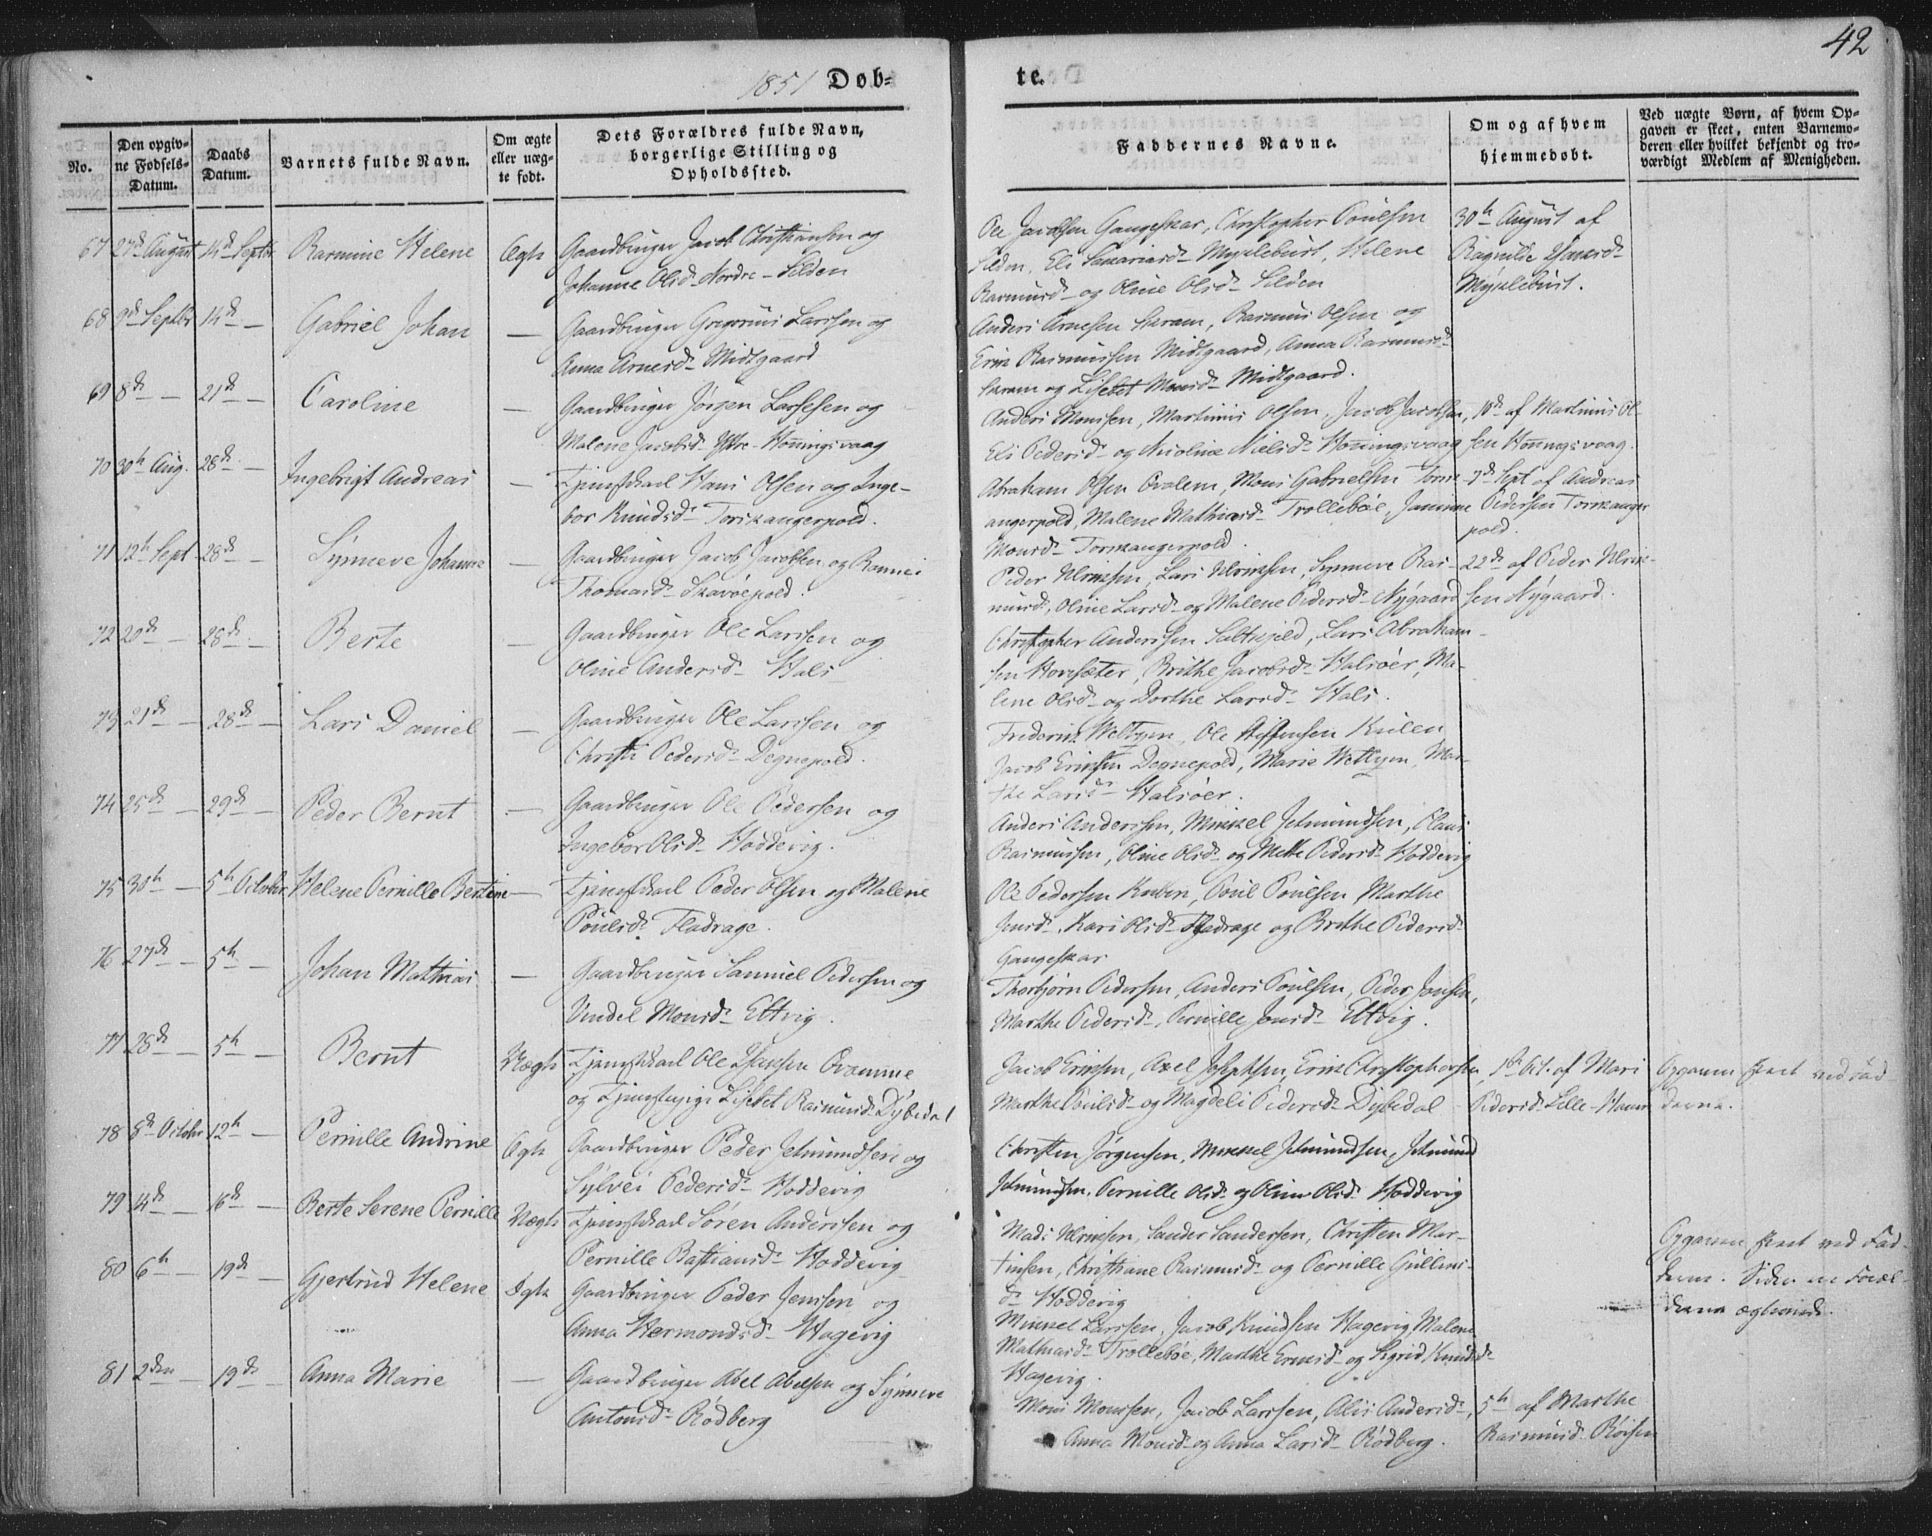 42
1851 Døb=
te.
No.
Den opgiv-
ne Fødsels-
Datum.
Daabs
Datum.
Barnets fulde Navn.
Om ægte
eller uæg-
te født.
Dets Forældres fulde Navn,
borgerlige Stilling og
Opholdssted.
Faddernes Navne.
Om og af hvem
hjemmedøbt.
Ved uægte Børn, af hvem Op-
gaven er skeet, enten Barnemo-
deren eller hvilket bekjendt og tro-
værdigt Medlem af Menigheden.
67 27de August 14de Septbr Rasmine Helene Ægte Gaardbruger Jacob Christiansen og
Johanne Olsd. Nordre-Silden
Ole Jacobsen Gangeskar, Christopher Poulsen
Silden, Eli Samariasd. Myklebust, Helene
Rasmusd. og Oline Olsd. Silden
30te August af
Ragnilde Hansd.
Myklebust.
68 9de Septbr 14de — Gabriel Johan — Gaardbruger Gregorius Larssen og
Anna Arnesd. Midtgaard
Anders Arnesen Haram, Rasmus Olsen og
Erik Rasmussen Midtgaard, Anna Rasmusd.
Haram og Lisebet Monsd. Midtgaard.
69 8de — 21de — Caroline — Gaardbruger Jørgen Larsesen og
Malene Jacobsd. Ytre-Honningsvaag
Anders Monssen, Martinus Olsen, Jacob Jacobsen,
Eli Pedersd. og Nicoline Nielsd. Honningsvaag
10de af Martinus Ol-
sen Honningsvaag.
70 30te Aug. 28de — Ingebrigt Andreas — Tjenestkarl Hans Olsen og Inge-
bor Knudsd. Torskangerpold.
Abraham Olsen Qvalem, Mons Gabrielsen Torsk-
angerpold, Malene Mathiasd. Trollebøe, Jansine
Monsd. Torskangerpold.
7de Sept. af Andreas
Pedersen Torskanger
pold.
71 12te Sept 28de — Synneve Johanne — Gaardbruger Jacob Jacobsen og Rannei
Thomasd. Skavøepold.
Peder Ulriksen, Lars Ulriksen, Synneve Ras-
musd., Oline Larsd. og Malene Pedersd. Nygaard
22de af Peder Ulrik-
sen Nygaard.
72 20de — 28de — Berte — Gaardbruger Ole Larssen og
Oline Andersd. Hals
Christopher Anderssen Saltkjeld, Lars Abraham-
sen Hovsæter, Brithe Jacobsd. Halsøer, Ma-
lene Olsd. og Dorthe Larsd. Hals.
73 21de — 28de — Lars Daniel — Gaardbruger Ole Larssen og
Christi Pedersd. Degnepold.
Frederik Weltzen, Ole Steffensen Kulen
Jacob Eriksen Degnepold, Marie Weltzen, Mar-
the Larsd. Halsøer.
74 25de — 29de — Peder Bernt — Gaardbruger Ole Pedersen og
Ingebor Olsd. Hoddevig.
Anders Anderssen, Mikkel Jetmundsen, Claus
Rasmussen, Oline Olsd. og Mette Pedersd. Hoddevig
75 30te — 5te October Helene Pernille Bertine — Tjenestkarl Peder Olsen og Malene
Poulsd. Fladrage.
Ole Pedersen Kulen, Poul Poulsen, Marthe
Jensd., Kari Olsd. Fladrage og Brithe Pedersd.
Gangeskar
76 27de — 5te — Johan Mathias — Gaardbruger Samuel Pedersen og
Vindel Monsd. Eltvig.
Thorbjørn Pedersen, Anders Poulsen, Peder Jonsen,
Marthe Pedersd., Pernille Jonsd. Eltvig.
77 28de — 5te — Bernt Uægte Tjenestkarl Ole Hanssen Qvamme
og Tjenestepige Lisebet Rasmusd. Dybedal
Jacob Eriksen, Axel Josephsen, Erik Christophersen,
Marthe Poulsd. og Magdeli Pedersd. Dybedal
1ste Oct. af Mari
Pedersd. Lille-Hamn
Opgaven skeet ved Fad-
derne.
78 8de October 12te — Pernille Andrine Ægte Gaardbruger Peder Jetmundsen og
Sylvei Pedersd. Hoddevig
Christen Jørgensen, Mikkel Jetmundsen, Jetmund
Jetmundsen, Pernille Olsd. og Oline Olsd. Hoddevig
79 4de — 16de — Berte Serene Pernille Uægte Tjenestkarl Søren Anderssen og
Pernille Bastiansd. Hoddevig
Mads Ulriksen, Sander Sandersen, Christen Mar-
tinsen, Christiane Rasmusd. og Pernille Gullens-
d. Hoddevig
Opgaven skeet ved Fad-
derne. Siden ere Foræl-
derne ægteviede.
80 6te — 19de — Gjertrud Helene Ægte Gaardbruger Peder Jenssen og
Anna Hermondsd. Hagevig
Mikkel Larssen, Jacob Knudsen Hagevig, Malene
Mathiasd. Trollebøe, Marthe Ermisd. og Sigrid Knudsd.
Hagevig.
81 2den — 19de — Anna Marie — Gaardbruger Abel Abelsen og Synneve
Antonsd. Rødberg
Mons Monssen, Jacob Larssen, Alis Andersd.,
Anna Monsd. og Anna Larsd. Rødberg.
5te af Marthe
Rasmusd. Røisen